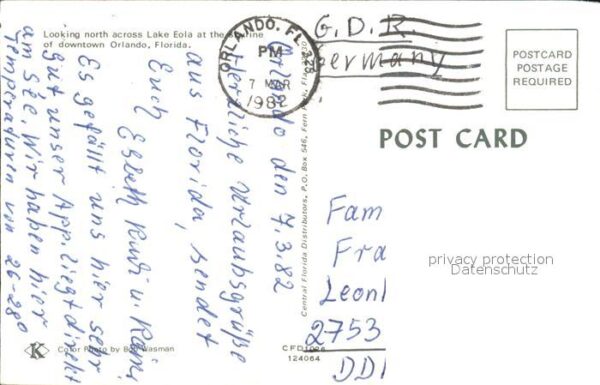 Looking north across Lake Eola at the skyline
of downtown Orlando, Florida.
ORLANDO, FL 328
PM
7 MAR
1982
G.D.R.
Germany
POSTCARD
POSTAGE
REQUIRED
POST CARD
Orlando den 7.3.82
Herzliche Urlaubsgrüße
aus Florida, sendet
Euch Elsbeth Rudi u.
Es gefällt uns hier sehr
gut unser App. liegt direkt
am See. Wir haben hier
Temperaturen von 26-28º
Central Florida Distributors, P.O. Box 546, Fern Park, Florida
Fam
Fra
Leonh
2753
DDR
privacy protection
Datenschutz
K
Color Photo by Bob Wasman
CFD1026
124064